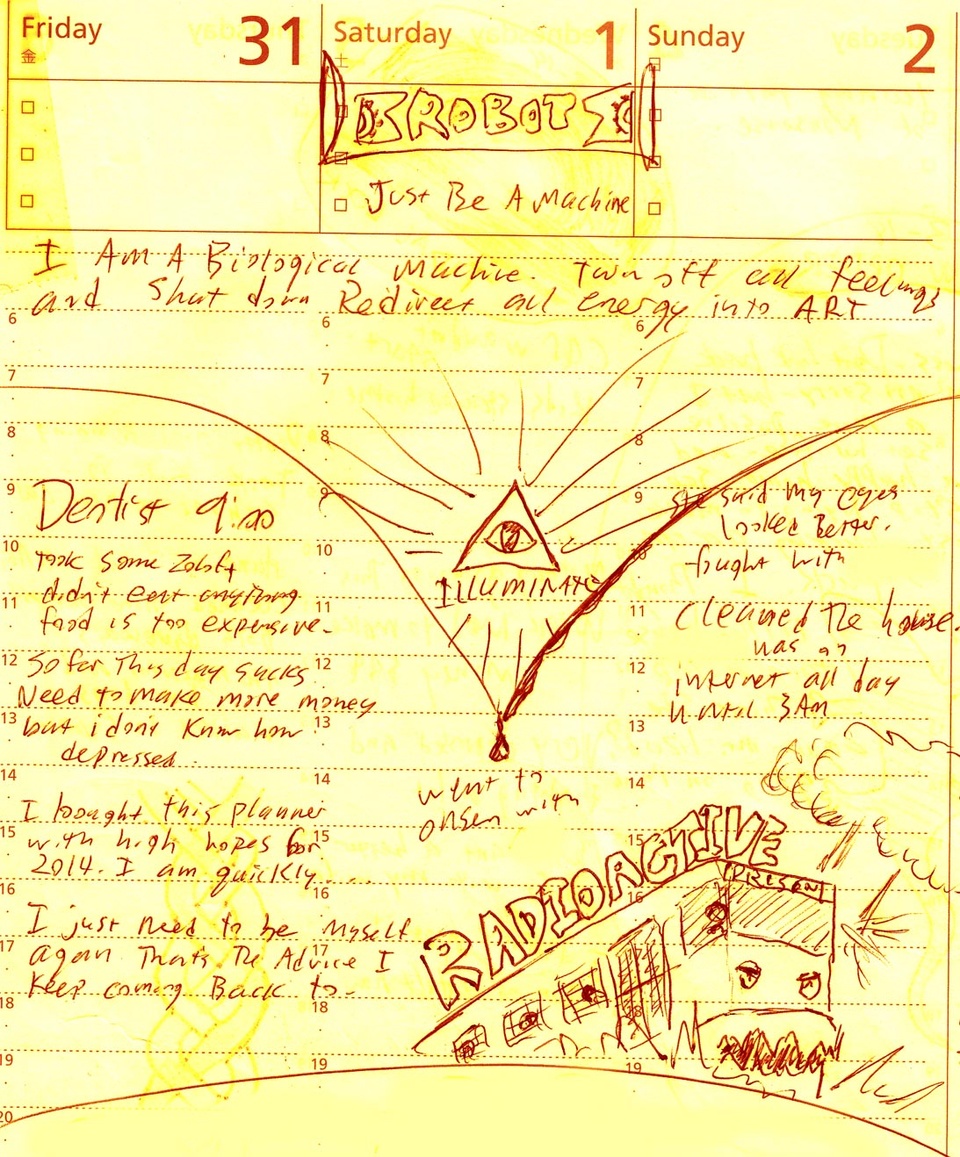 Friday 31
金
Saturday 1
土
Sunday 2
ROBOT
Just Be A Machine
I Am A Biological Machine. Turn off all feelings
and Shut down Redirect all energy into ART
6 6 6
7 7 7
8 8 8
9 9 9
10 10 10
11 11 11
12 12 12
13 13 13
14 14
15 15 15
16 16 16
17 17
18 18 18
19 19 19
20
Dentist 9:00
took some Zoloft
didn't eat anything
food is too expensive.
So far This day sucks
Need to make more money
but i dont know how
depressed.
I bought this planner
with high hopes for
2014. I am quickly....
I just need to be Myself
again Thats The Advice I
Keep coming Back to.
ILLUMINATI
went to
onsen with
she said my eyes
looked Better.
fought with
cleaned The house.
was on
internet all day
until 3AM
RADIOACTIVE
PRISON